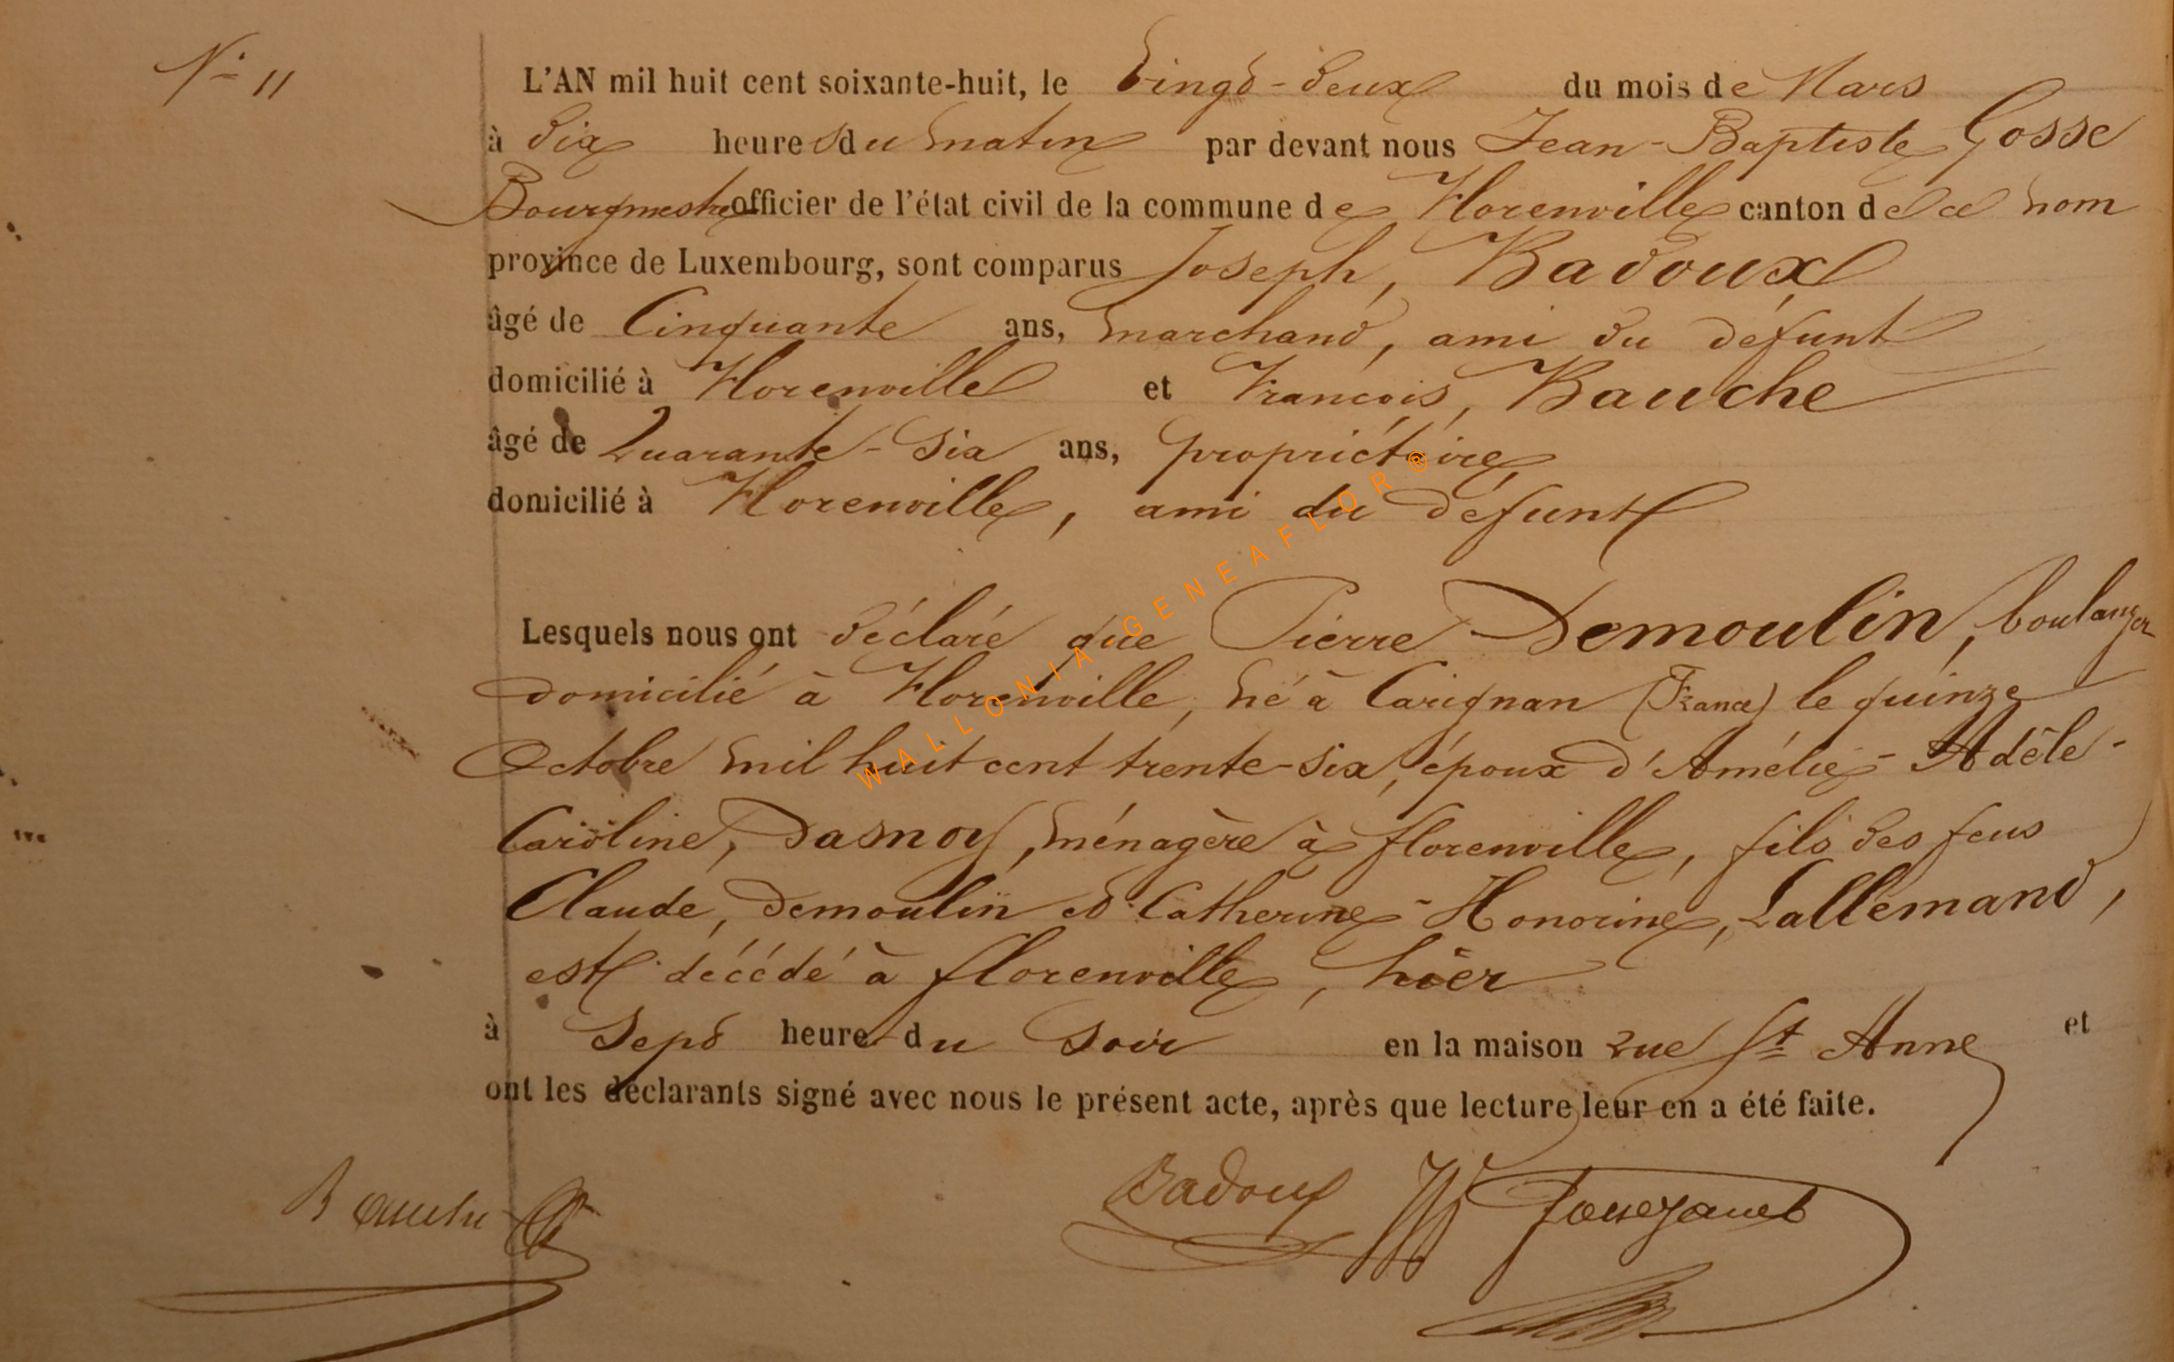 N° 11
L'AN mil huit cent soixante-huit, le Vingt-deux du mois de Mars
à dix heures du matin par devant nous Jean-Baptiste Gosse
Bourgmestre officier de l'état civil de la commune de Florenville canton de ce nom
province de Luxembourg, sont comparus Joseph, Badoux
âgé de Cinquante ans, marchand, ami du défunt
domicilié à Florenville et François, Bauche
âgé de Quarante-six ans, propriétaire
domicilié à Florenville, ami du défunt
Lesquels nous ont déclaré que Pierre Demoulin, boulanger
domicilié à Florenville, né à Carignan (France) le quinze
Octobre mil huit cent trente-six, époux d'Amélie-Adèle-
Caroline, Dasnoy, ménagère à florenville, fils des feus
Claude, Demoulin et Catherine-Honorine, Lallemand,
est décédé à florenville, hier
à Sept heure du Soir en la maison rue St Anne et
ont les déclarants signé avec nous le présent acte, après que lecture leur en a été faite.
Bauche Badoux
WALLONIA GENEAFLOR ®